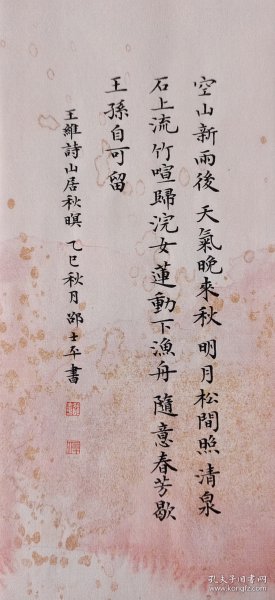 空山新雨後 天氣晚來秋 明月松間照 清泉
石上流 竹喧歸浣女 蓮動下漁舟 隨意春芳歇
王孫自可留
王維詩山居秋暝 乙巳秋月 邵士平書
孔夫子旧书网